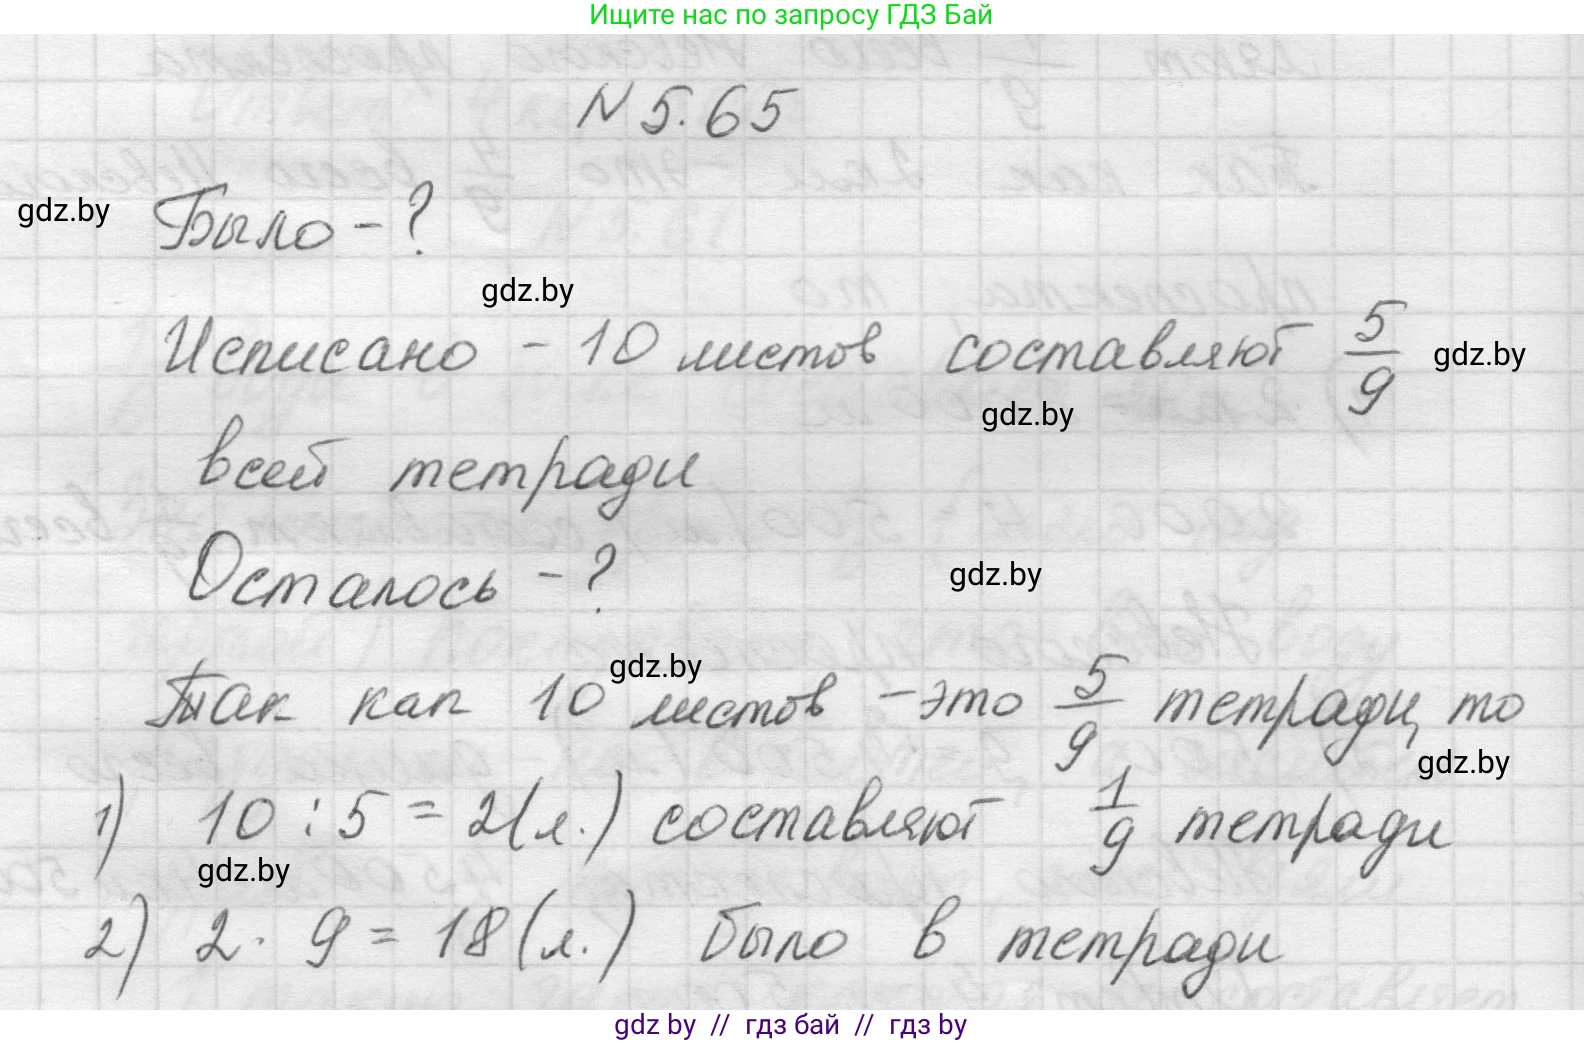 Ищите нас по запросу ГДЗ Бай
N 5.65
gdz.by
Было - ?
gdz.by
Исписано - 10 листов составляют 5/9
gdz.by
gdz.by
всей тетради
Осталось - ?
gdz.by
gdz.by
Так как 10 листов - это 5/9 тетради, то
gdz.by
1) 10 : 5 = 2 (л.) составляют 1/9 тетради
gdz.by
2) 2 · 9 = 18 (л.) было в тетради
gdz by // гдз бай // гдз by